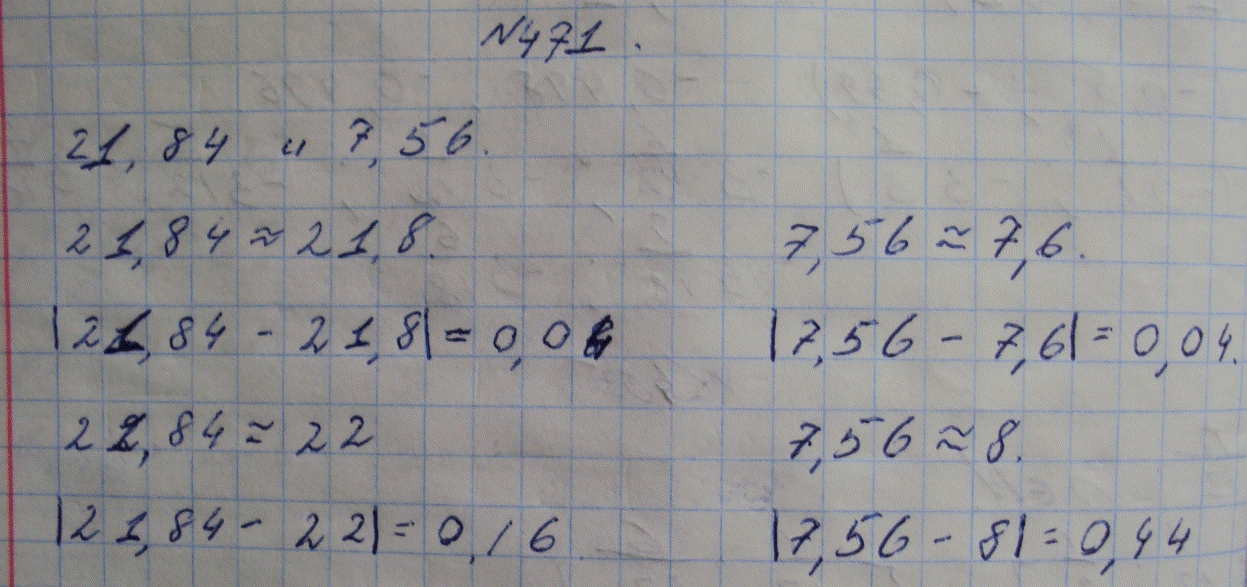 №471.
21,84 и 7,56.
21,84 ≈ 21,8. 7,56 ≈ 7,6.
|21,84 - 21,8| = 0,04 |7,56 - 7,6| = 0,04.
22,84 ≈ 22 7,56 ≈ 8.
|21,84 - 22| = 0,16 |7,56 - 8| = 0,44